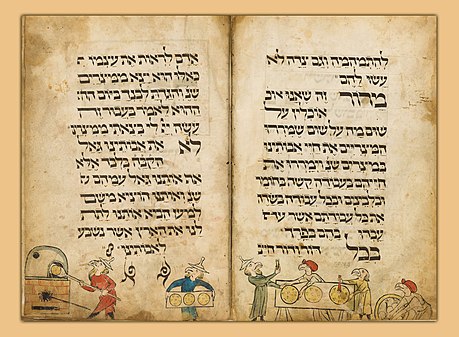 להתמהמה וגם צדה לא
עשו להם
מרור זה שאנו אוכ
אוכלין על
שום מה על שום שמררו
המצריים את חיי אבותינו
במצרים שנ וימררו את
חייהם בעבודה קשה בחמר
ובלבנים ובכל עבודה בשדה
את כל עבודתם אשר עבדו
עבדו בהם בפרך
בכל דור ודור חייב
אדם לראות את עצמו
כאלו הוא יצא ממצרים
שנ והגדת לבנך ביום הה
ההוא לאמר בעבור זה
עשה לי בצאתי ממצרים
לא את אבותינו גאל
הקבה בלבד אלא
אף אותנו גאל עמהם
שנ ואותנו הוציא משם
למען הביא אותנו לתת
לנו את הארץ אשר נשבע
לאבותינו